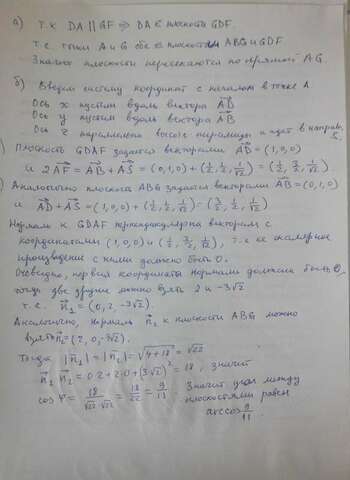 а) Т.к DA || GF ⇒ DA ∈ плоскость GDF.
Т.е. точки A и G обе ∈ плоскостям ABG и GDF.
Значит плоскости пересекаются по прямой AG
б) Введем систему координат с началом в точке A
Ось x пустим вдоль вектора AD
Ось y пустим вдоль вектора AB
Ось z параллельна высоте пирамиды и идет в направл.
S.
Плоскость GDAF задается векторами AD = (1,0,0)
и 2AF = AB + AS = (0,1,0) + (1/2, 1/2, 1/√2) = (1/2, 3/2, 1/√2).
Аналогично плоскость ABG задается векторами AB = (0,1,0)
и AD + AS = (1,0,0) + (1/2, 1/2, 1/√2) = (3/2, 1/2, 1/√2)
Нормаль к GDAF перпендикулярна векторам с
координатами (1,0,0) и (1/2, 3/2, 1/√2), т.е ее скалярное
произведение с ними должно быть 0.
Очевидно, первая координата нормали должна быть 0,
тогда две другие можно взять 2 и -3√2
т.е. n₁ = (0, 2, -3√2).
Аналогично, нормаль n₂ к плоскости ABG можно
взять n₂ = (2, 0, -3√2).
Тогда |n₁| = |n₂| = √4+18 = √22
n₁ n₂ = 0·2 + 2·0 + (3√2)² = 18, значит
cos φ = 18/√22·√22 = 18/22 = 9/11. Значит угол между
плоскостями равен
arccos 9/11.